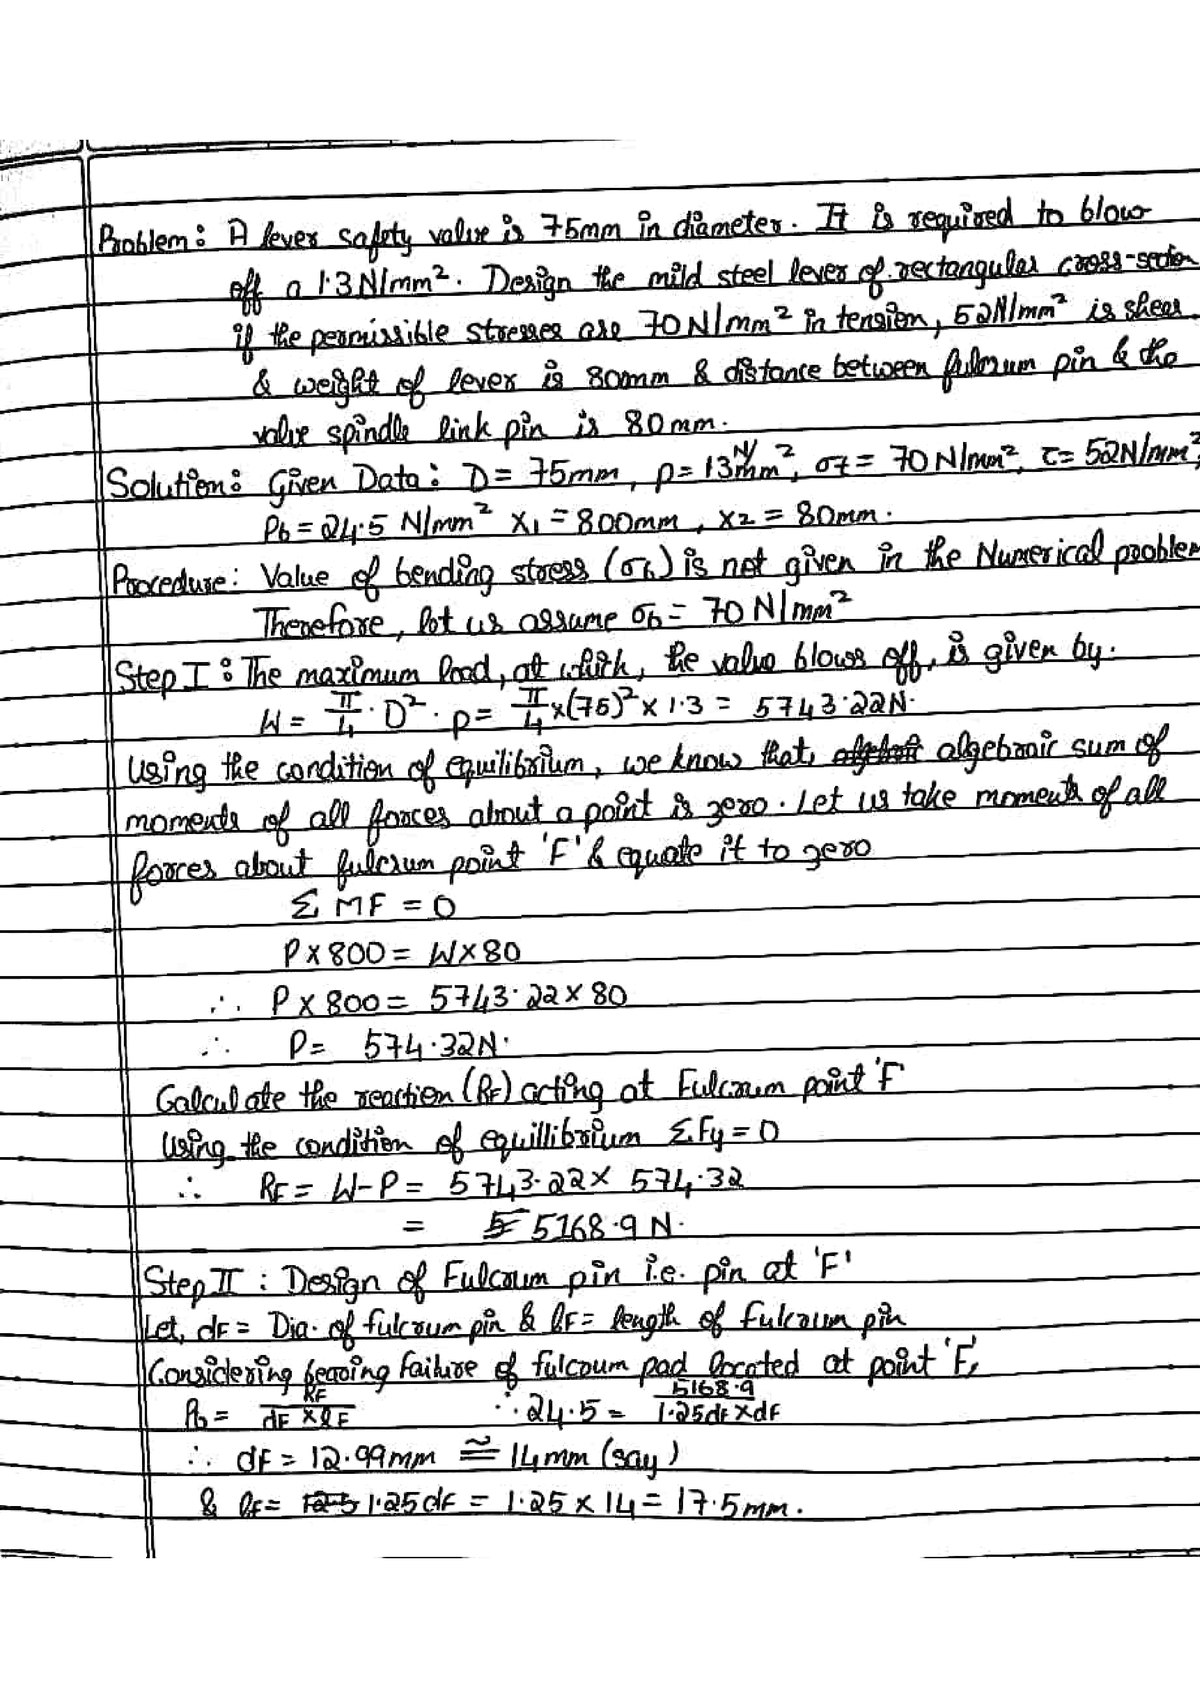 Problem: A lever safety valve is 75mm in diameter. It is required to blow
off a 1.3N/mm². Design the mild steel lever of rectangular cross-section
if the permissible stresses are 70N/mm² in tension, 52N/mm² is shear.
& weight of lever is 800mm & distance between fulcrum pin & the
valve spindle link pin is 80mm.
Solution: Given Data: D = 75mm, p = 13 N/mm², σt = 70N/mm², τ = 52N/mm²,
Pb = 24.5 N/mm² x1 = 800mm, x2 = 80mm.
Procedure: Value of bending stress (σb) is not given in the Numerical problem
Therefore, let us assume σb = 70 N/mm²
Step I: The maximum load, at which, the valve blows off, is given by.
W = π/4 · D² · p = π/4 x(75)² x 1.3 = 5743.22N.
Using the condition of equilibrium, we know that, algebraic sum of
moments of all forces about a point is zero. Let us take moments of all
forces about fulcrum point 'F' & equate it to zero
Σ MF = 0
P x 800 = W x 80
∴ P x 800 = 5743.22 x 80
∴ P = 574.32N.
Calculate the reaction (RF) acting at Fulcrum point 'F'
Using the condition of equillibrium ΣFy = 0
∴ RF = W-P = 5743.22 x 574.32
= 5168.9 N.
Step II : Design of Fulcrum pin i.e. pin at 'F'
Let, dF = Dia. of fulcrum pin & lF = length of fulcrum pin
Considering bearing failure of fulcrum pad located at point 'F',
Pb = RF / dF x lF ∴ 24.5 = 5168.9 / 1.25dF x dF
∴ dF = 12.99mm ≅ 14mm (say)
& lF = 1.25dF = 1.25 x 14 = 17.5mm.